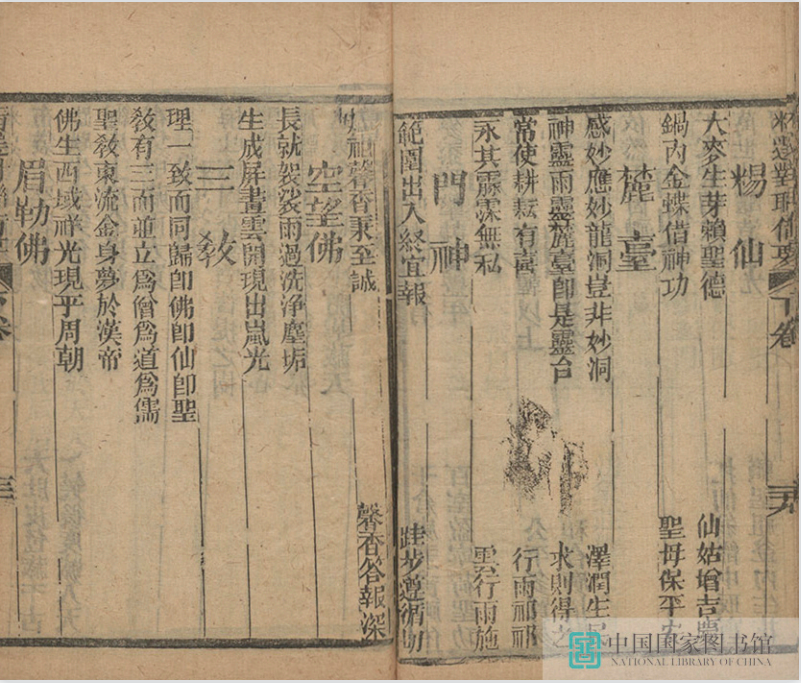 下卷
餳仙
大麥生芽賴聖德
仙姑增吉慶
鍋內金蝶借神功
聖母保平
麓臺
感妙應妙龍洞豈非妙洞
澤潤生民
神靈雨靈麓臺即是靈台
求則得之
常使耕耘有喜
行雨祁祁
永其霢霂無私
雲行雨施
門神
範圍出入終宜報
跬步遵循
祖馨香秉至誠
馨香答報深
空望佛
長就袈裟雨過洗淨塵垢
生成屏畫雲開現出嵐光
三教
理一致而同歸即佛即仙即聖
教有三而並立為僧為道為儒
聖教東流金身夢於漢帝
佛生西域祥光現乎周朝
眉勒佛
中国国家图书馆
NATIONAL LIBRARY OF CHINA